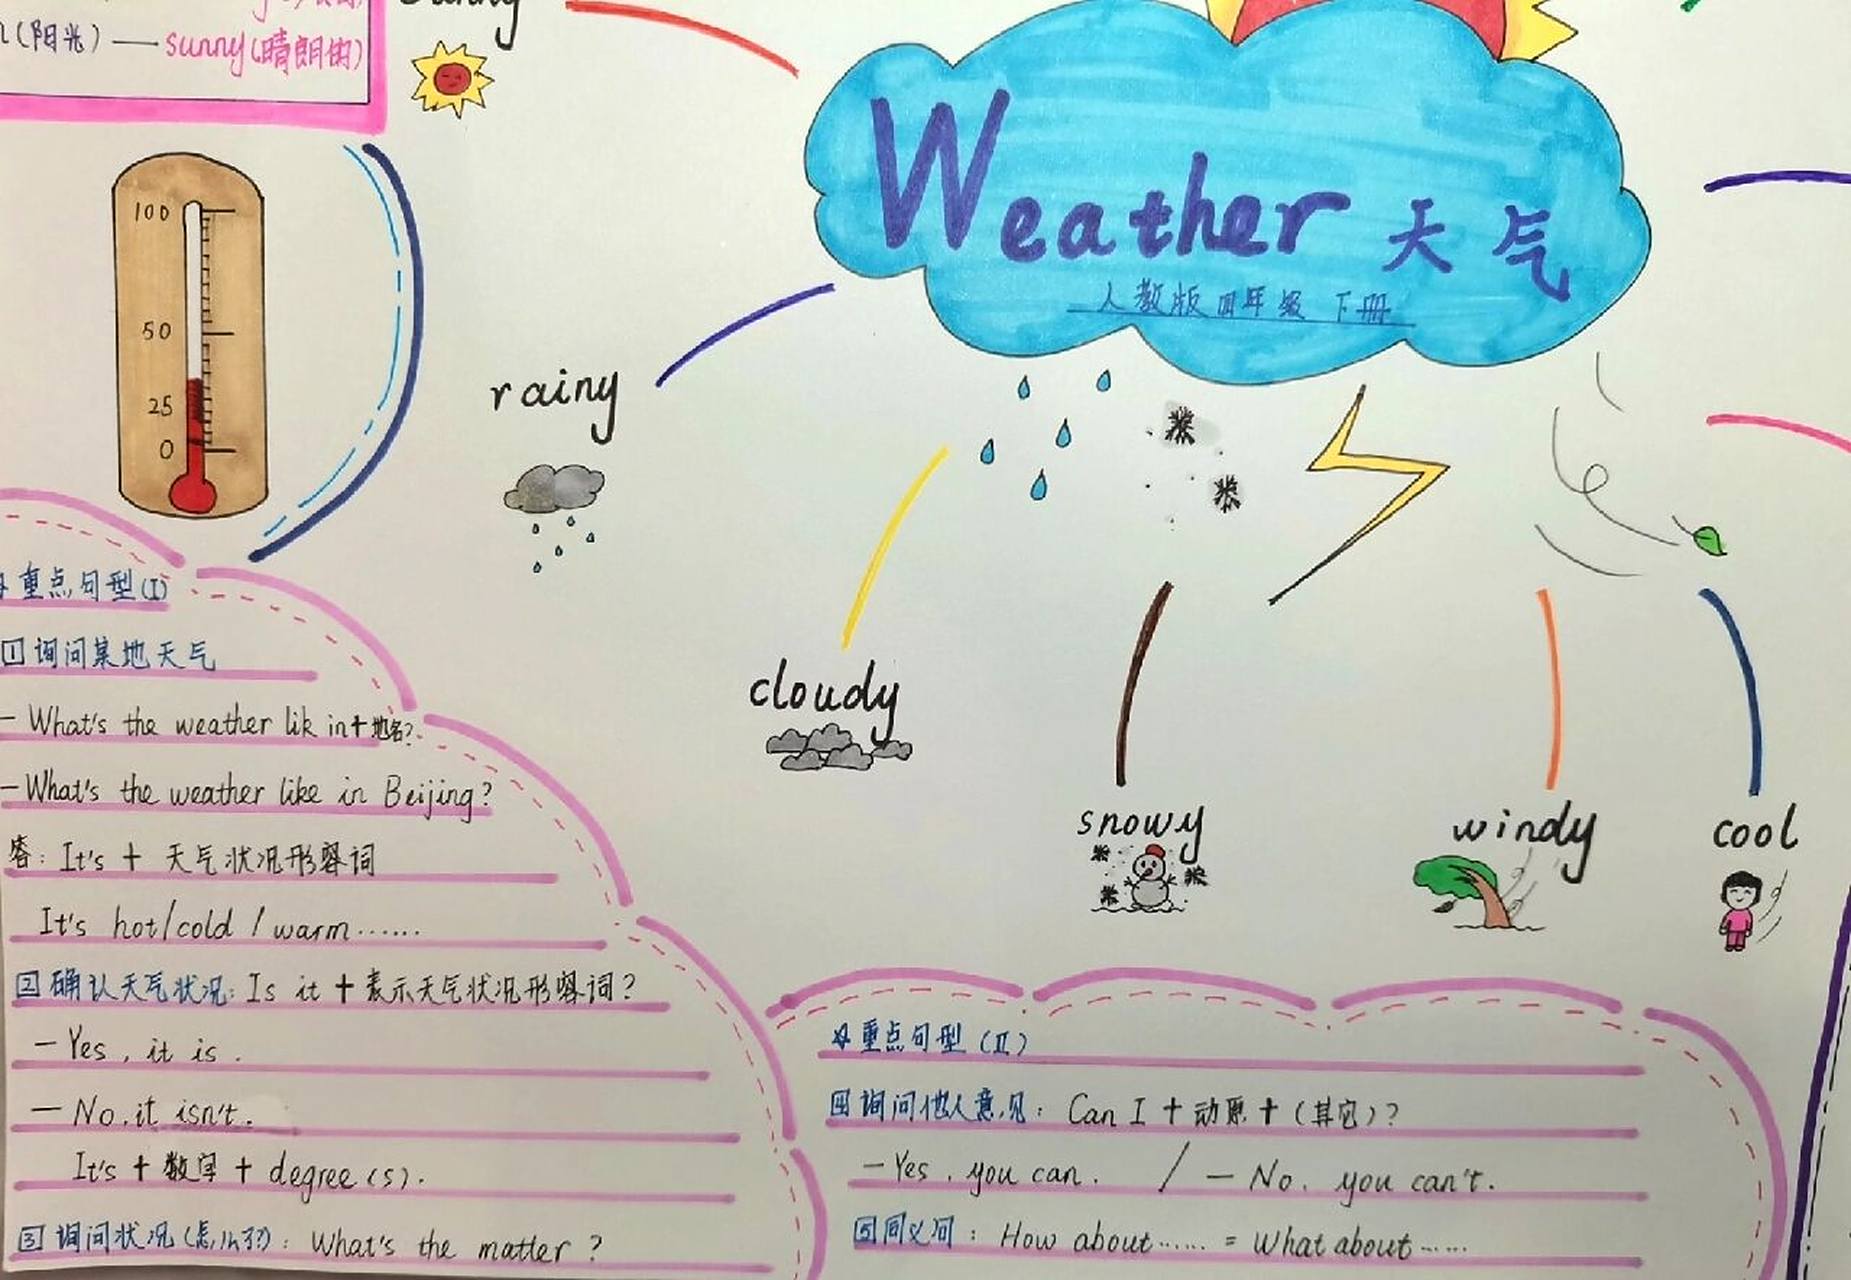 (阳光)——sunny(晴朗的)
Weather 天气
人教版四年级 下册
100
50
25
0
rainy
cloudy
snowy
windy
cool
重点句型(I)
1 询问某地天气
- What's the weather lik in+地名?
- What's the weather like in Beijing?
答: It's + 天气状况形容词
It's hot/cold / warm ......
2 确认天气状况: Is it + 表示天气状况形容词?
- Yes, it is.
- No, it isn't.
It's + 数字 + degree(s).
3 询问状况(怎么了?): What's the matter?
☆重点句型(II)
4 询问他人意见: Can I + 动原 + (其它)?
- Yes, you can. / - No, you can't.
5 同义问: How about ...... = What about ......